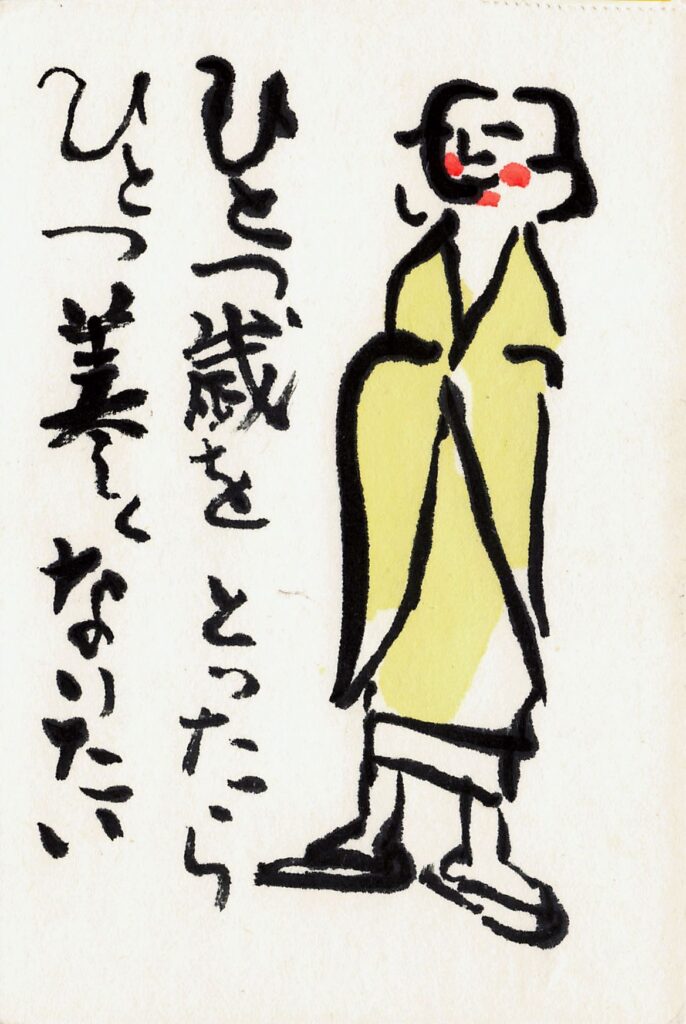 ひとつ歳をとったら
ひとつ美しくなりたい